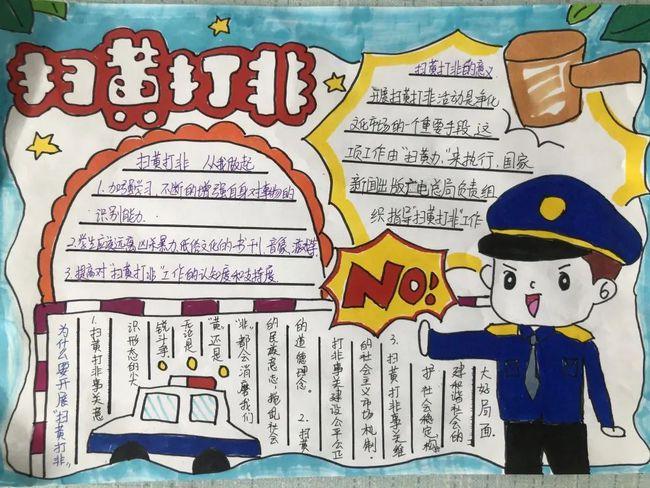 扫黄打非
扫黄打非 从我做起
1.加强学习,不断的增强自身对事物的
识别能力.
2.学生应该远离凶杀暴力,低俗文化的书刊、音像、游戏等
3.提高对“扫黄打非”工作的认知度和支持度.
扫黄打非的意义
开展扫黄打非活动是净化
文化市场的一个重要手段,这
项工作由“扫黄办”来执行,国家
新闻出版广电总局负责组
织指导“扫黄打非”工作
NO!
为什么要开展“扫黄打非”
1.扫黄打非事关意
识形态的尖
锐斗争
无论是
“黄”还是
“非”都会消磨我们
的民族意志,扰乱社会
的道德理念。 2.扫黄
打非事关建设公平公正
的社会主义市场机制.
3.扫黄打非事关维
护社会稳定,构
建和谐社会的
大好局面.